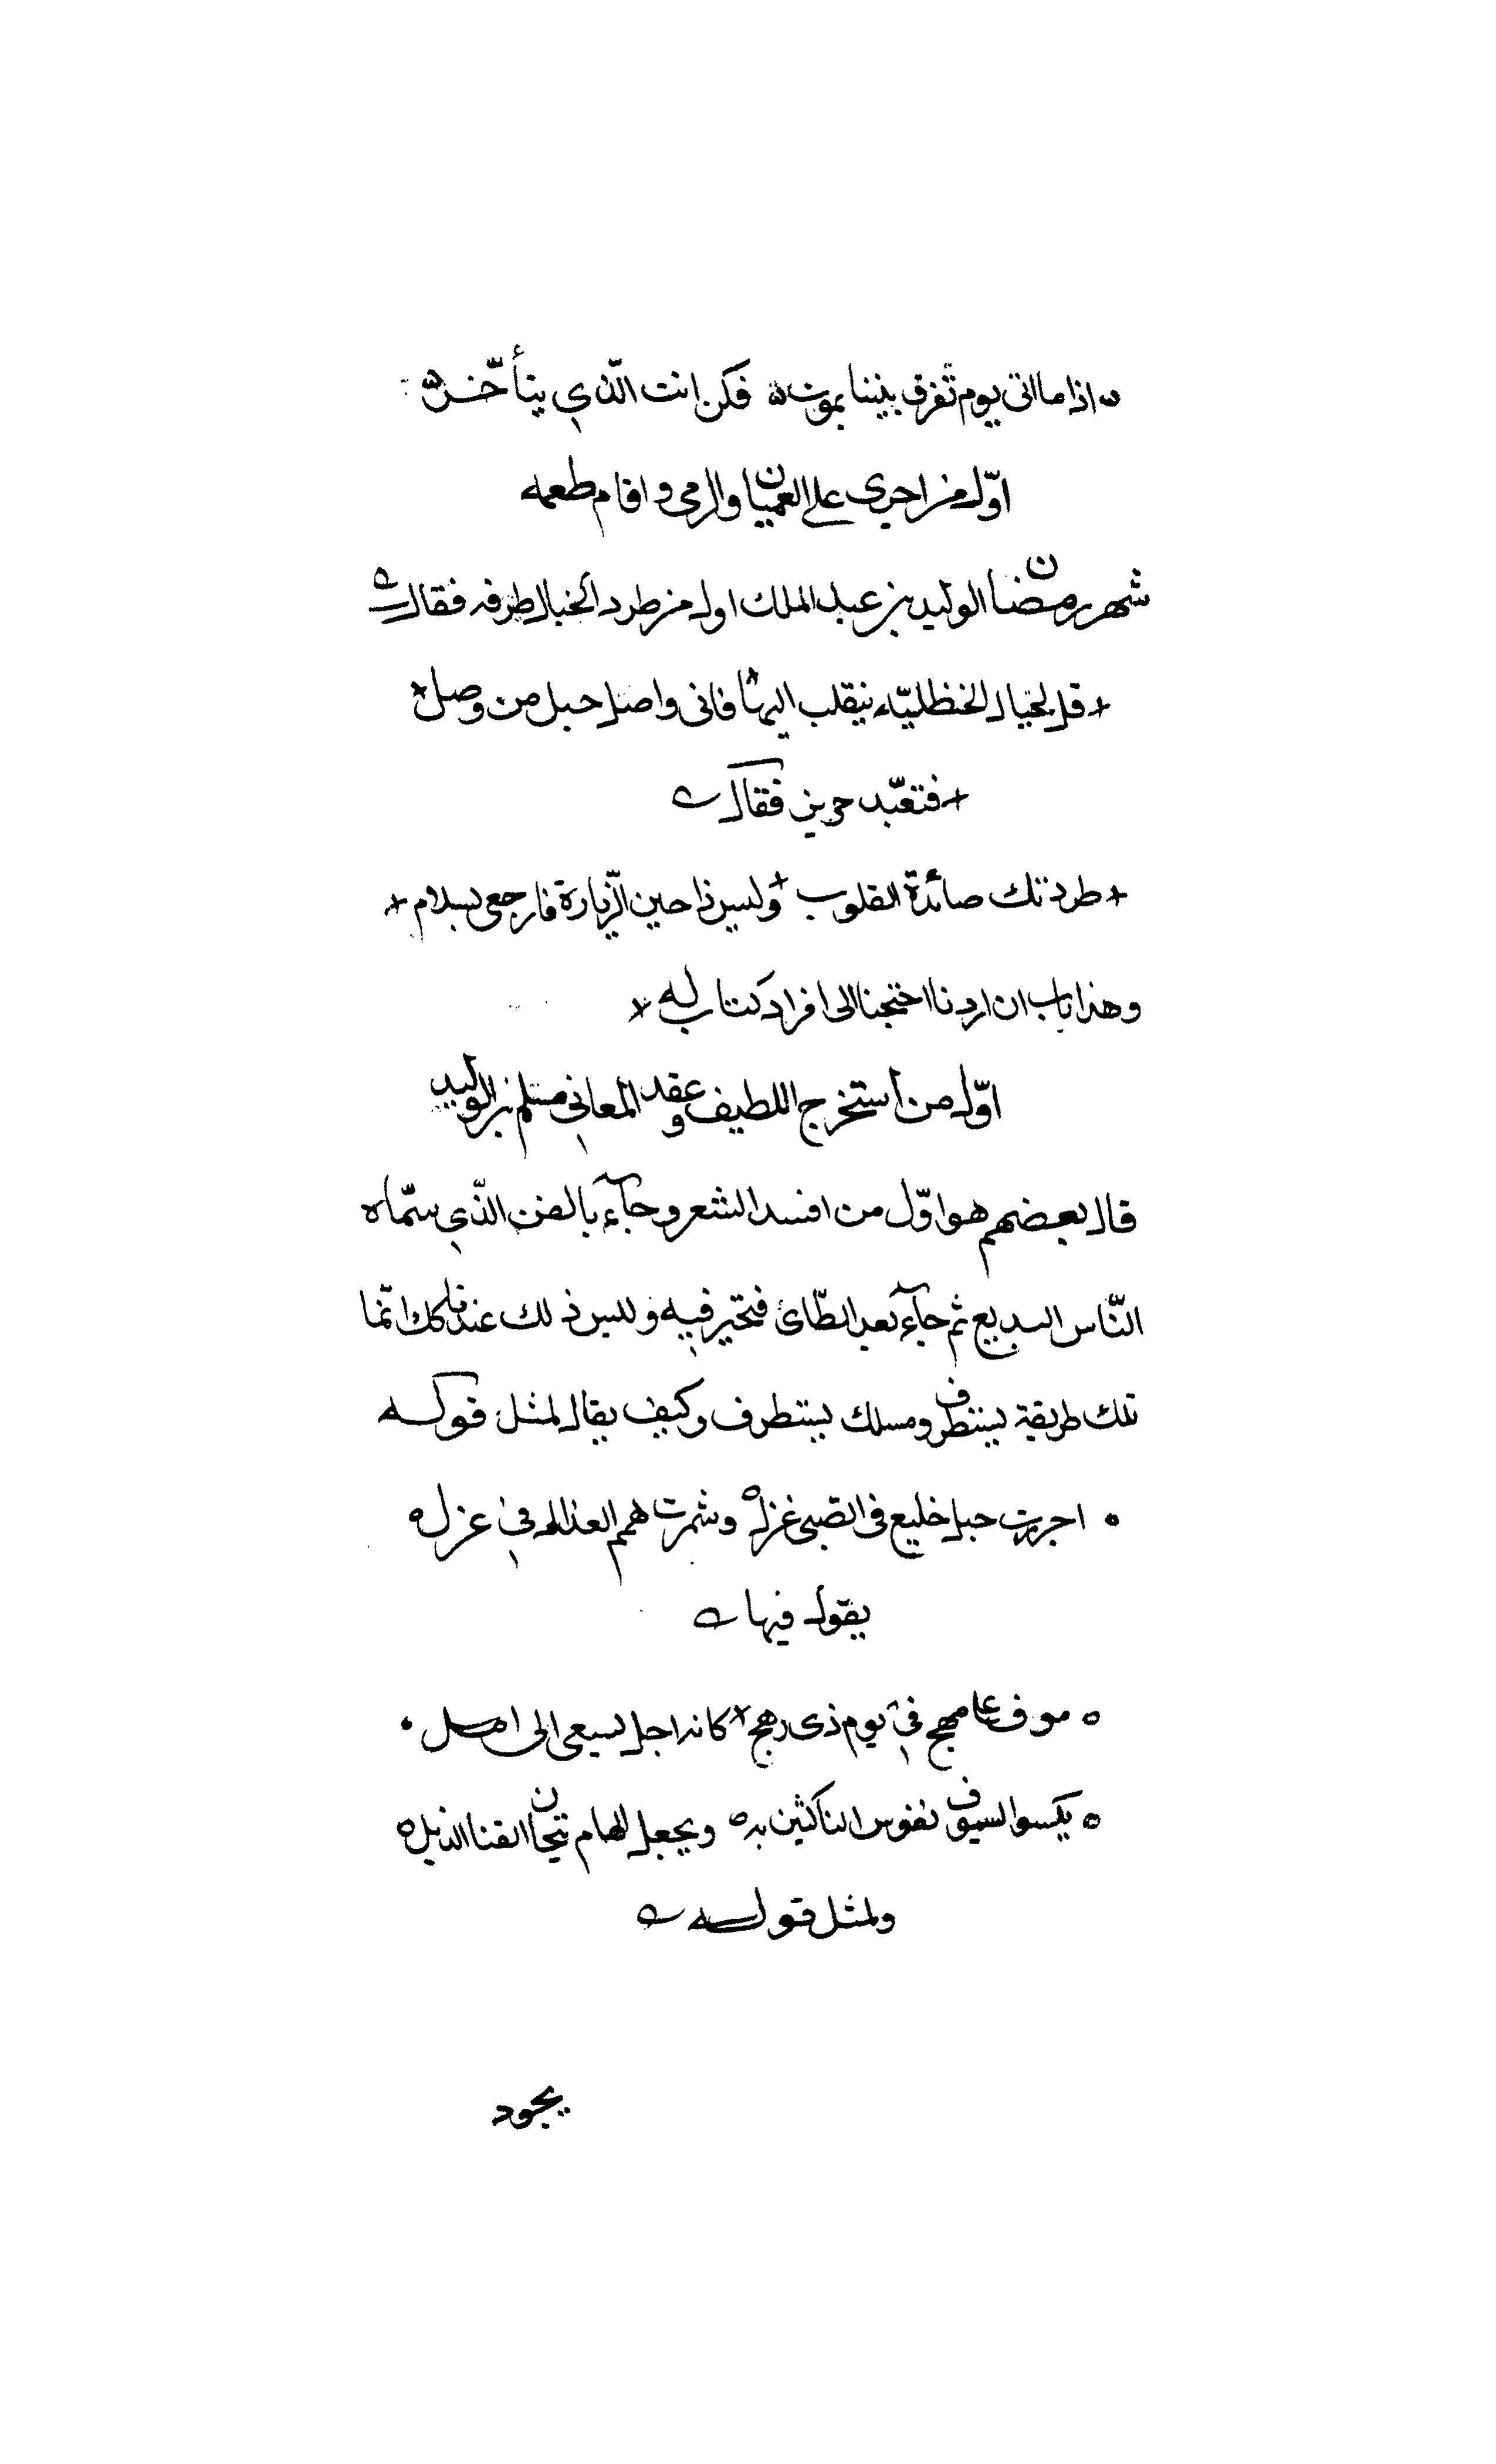 اذا ما اتى يوم تفرق بيننا بموت ه فكن انت الّذي يتأخّر
اوّل من اجرى على العميان والزمى واقام طعمه
شهر رمضان الوليد بن عبد الملك اول من طرد الخيال طرفه فقال
+ قل لخيال الحنظليّة ينقلب اليها فانى واصل حبل من وصل ه
+ فتعبّد جرير فقال
+ طرد تك صائدة القلوب + وليس ذا حين الزّيارة فارجعى بسلام +
وهذا باب ان اردنا احتجنا الى افراد كتاب له +
اوّل من استخرج اللطيف وعقد المعاني مسلم بن الوليد
قال بعضهم هو اوّل من افسد الشعر وجآء بالفن الّذي سمّاه
النّاس البديع ثم جآء بعد الطّائ فتحير فيه وليس ذلك عندنا كك انّما
تلك طريقة يستظرف ومسلك يستطرف وكيف يقال لمثل قوله
• اجررت حبل خليع فى الصّبى غزل ه وشمرت همم العذال في عزل ه
يقول فيها
ه موف على مهج في يوم ذى رهج + كانه اجل يسعى الى امل •
ه يكسو السيوف نفوس الناكثين به ه ويجعل الهام تيجان القنا الذبل ه
ولمثل قوله
يجود